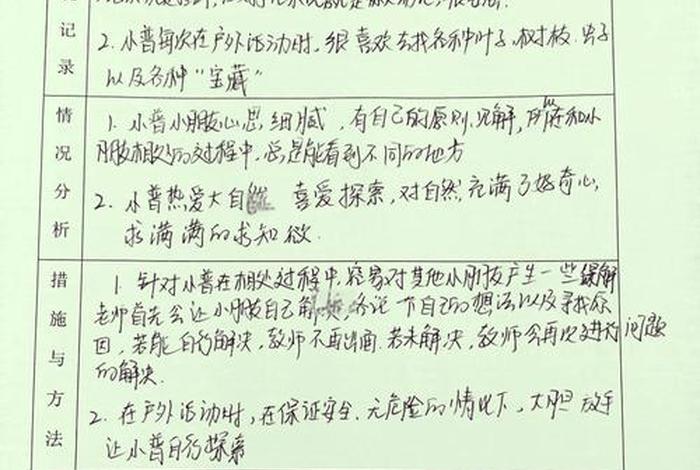 记录
2. 小普每次在户外活动时，很喜欢去找各种叶子、树枝、虫子
以及各种“宝藏”
情况分析
1. 小普小朋友心思细腻，有自己的原则、见解，所以在和小
朋友相处的过程中，总是能看到不同的地方
2. 小普热爱大自然 喜爱探索，对自然充满了好奇心，
求满满的求知欲.
措施与方法
1. 针对小普在相处过程中，容易对其他小朋友产生一些误解
老师首先会让小朋友自己解决，各说一下自己的想法以及寻找原
因，若能自行解决，教师不再出面. 若未解决，教师会再次进行问题
的解决.
2. 在户外活动时，在保证安全、无危险的情况下，大胆放手
让小普自行探索